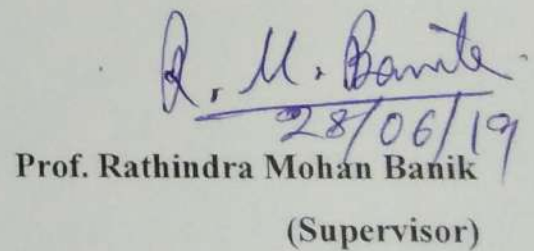 R. M. Banik
28/06/19
Prof. Rathindra Mohan Banik
(Supervisor)